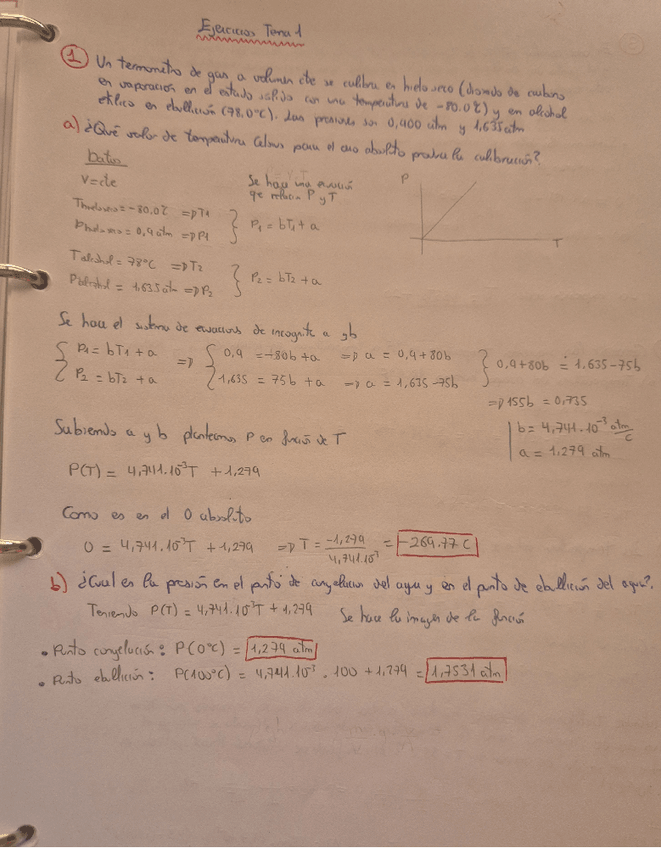 Ejercicios Tema 1
1 Un termometro de gas a volumen cte se calibra en hielo seco (dioxido de carbono
en vaporación en el estado sólido con una temperatura de -80.0℃) y en alcohol
etílico en ebullición (78,0°C). Las presiones son 0,900 atm y 1,635 atm
a) ¿Qué valor de temperatura Celsius para el cero absoluto produce la calibración?
Datos
V=cte
Se hace una ecuación
que relacion P y T
P
T
Thieloseco = -80.0℃ => T1
Phieloseco = 0,9 atm => P1
P1 = bT1 + a
Talcohol = 78°C => T2
Palcohol = 1,635 atm => P2
P2 = bT2 + a
Se hace el sistema de ecuaciones de incognita a y b
{ P1 = bT1 + a => { 0,9 = -80b + a => a = 0,9+80b } 0,9+80b = 1,635-75b
P2 = bT2 + a 1,635 = 75b + a => a = 1,635-75b
=> 155b = 0,735
b = 4,741·10⁻³ atm/C
a = 1,279 atm
Sabiendo a y b planteamos P en función de T
P(T) = 4,741·10⁻³T + 1,279
Como es en el 0 absoluto
0 = 4,741·10⁻³T + 1,279 => T = -1,279/4,741·10⁻³ = -269.77 C
b) ¿Cual es la presión en el punto de congelación del agua y en el punto de ebullición del agua?.
Teniendo P(T) = 4,741·10⁻³T + 1,279 Se hace la imagen de la función
• Punto congelación: P(0°C) = 1,279 atm
• Punto ebullición: P(100°C) = 4,741·10⁻³ · 100 + 1,279 = 1,7531 atm